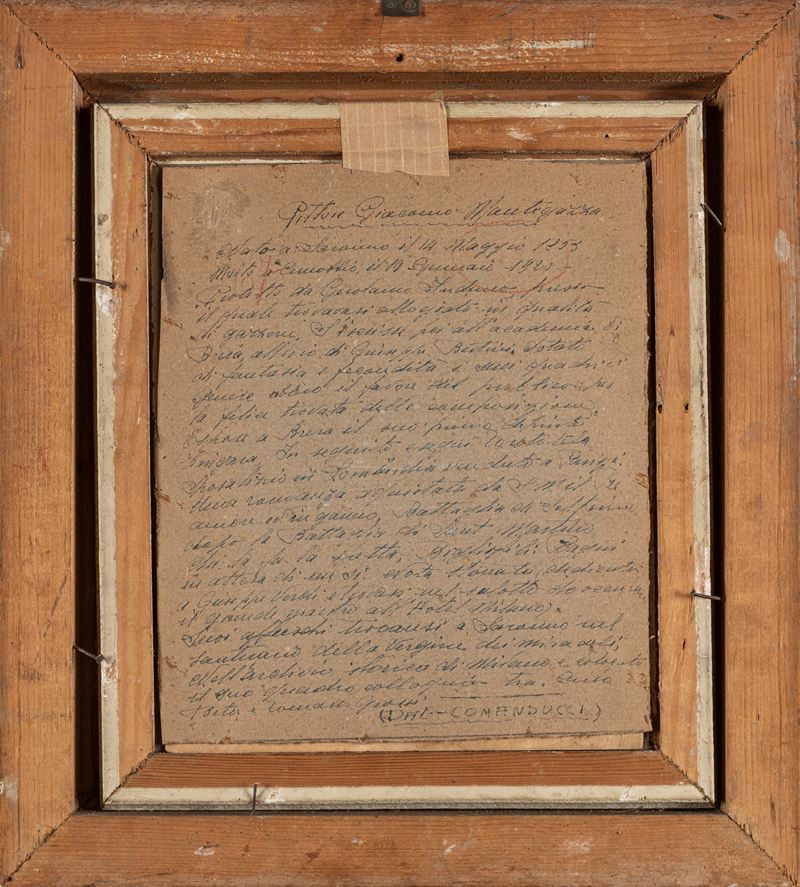 Pittore Giacomo Mantegazza
Nato a Saronno il 14 Maggio 1853
Morto a Cernobbio, il 19 Gennaio 1920
Protetto da Gerolamo Induno presso
il quale trovavasi allogiato in qualità
di garzone, S'iscrisse poi all'accademia di
Brera, allievo di Giuseppe Bertini. Dotato
di fantasia e fecondità i suoi quadri di
genere ebbero il favore del pubblico per
la felice trovata della composizione.
Espose a Brera il suo primo
In seguito eseguì
Sposalizio in Lombardia venduto a Parigi.
Una romanza aquistata da S.M. il Re
amore ed inganno, Battaglia di
dopo la Battaglia di Sant Martino
chi la fa la
in attesa di un si. Nota stonata, dedicata
a Giuseppe Verdi e trovasi nel salotto
il grande maestro all'Hotel Milano).
Suoi affreschi trovansi a Saronno nel
santuario della Vergine dei miracoli,
Nell'archivio storico di Milano e
il suo quadro colloquio tra Carlo
Porta e Tomaso Grossi.
(DAL - COMANDUCCI)